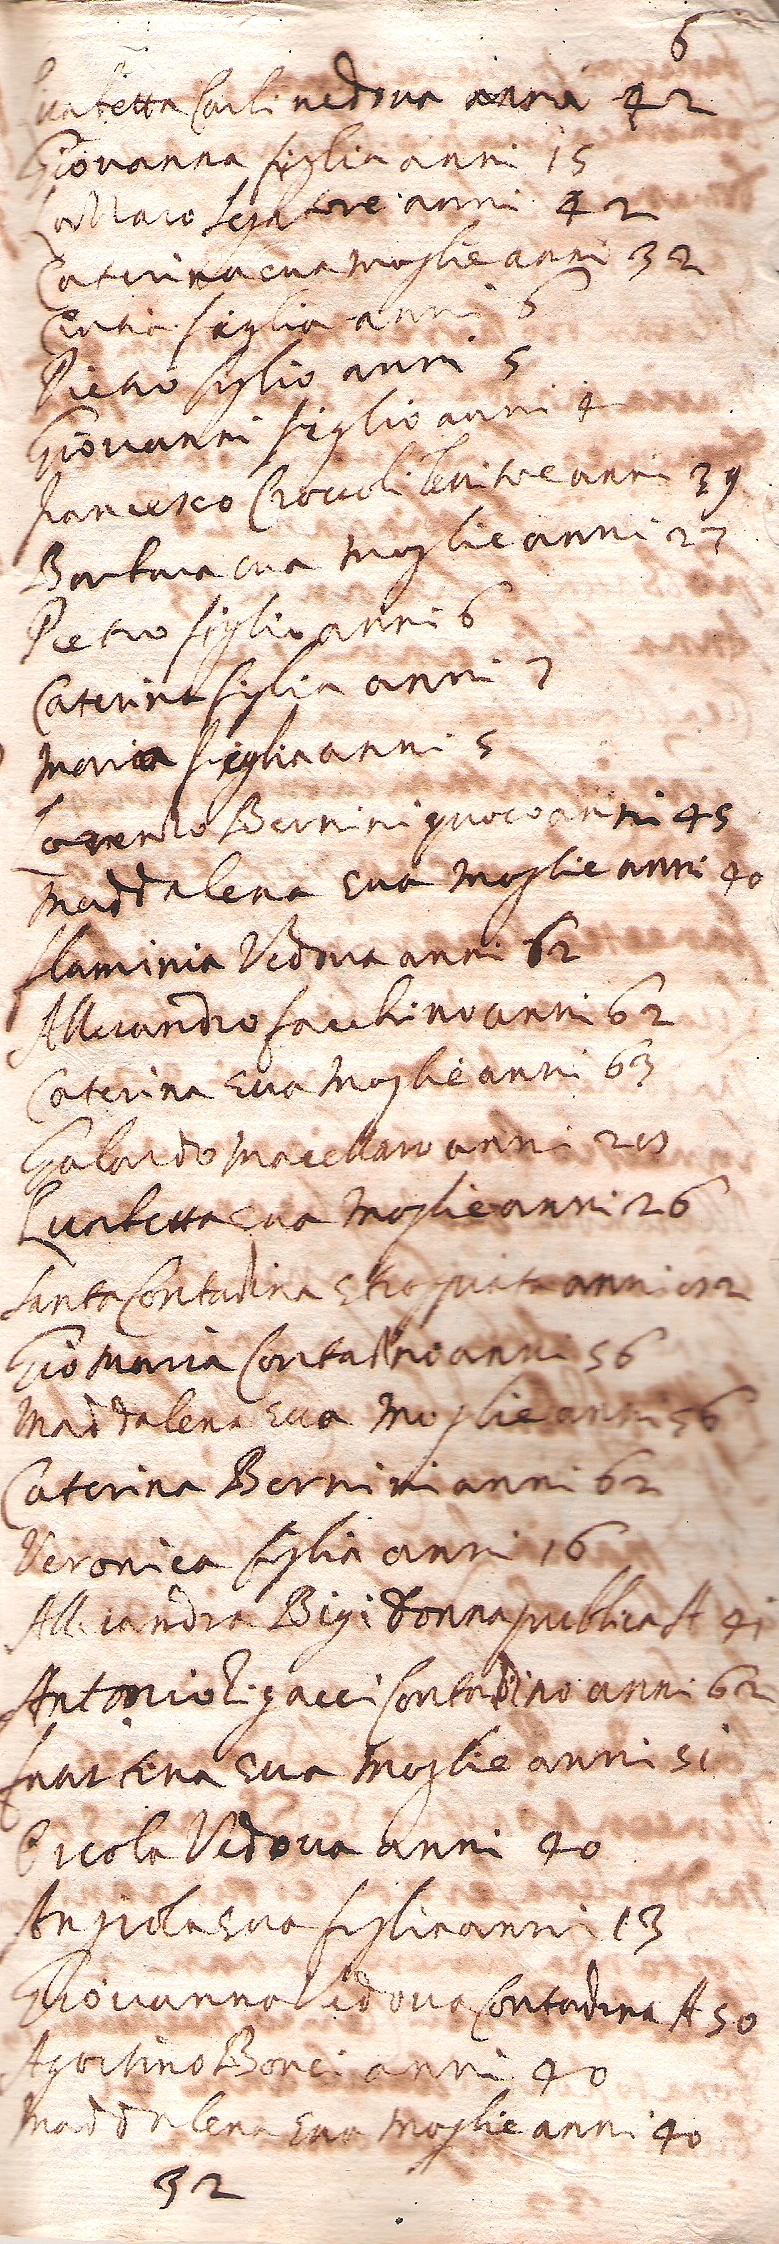 6
Lisabetta Carli vedova anni 42
Giovanna figlia anni 15
Lazzaro anni 42
Caterina sua moglie anni 32
figlia anni 6
Pietro figlio anni 5
Giovanni figlio anni 4
Francesco Croccoli Tessitore anni 39
Barbara sua moglie anni 27
Pietro figlio anni 6
Caterina figlia anni 7
Maria figlia anni 5
Lorenzo Bernini quoco anni 45
Maddalena sua moglie anni 40
Flaminia Vedova anni 62
Allisandro facchino anni 62
Caterina sua moglie anni 63
macellaro anni
Lisabetta sua moglie anni 26
Santa Contadina anni
Gio Maria Contadino anni 56
Maddalena sua moglie anni 56
Caterina Bernini anni 62
Veronica figlia anni 16
Allisandra Bigi donna publica A 41
Antonio Contadino anni 62
sua moglie anni 51
Vedova anni 40
Angiola sua figlia anni 13
Giovanna Vedova Contadina A 50
Agostino Bonci anni 40
Maddalena sua moglie anni 40
32